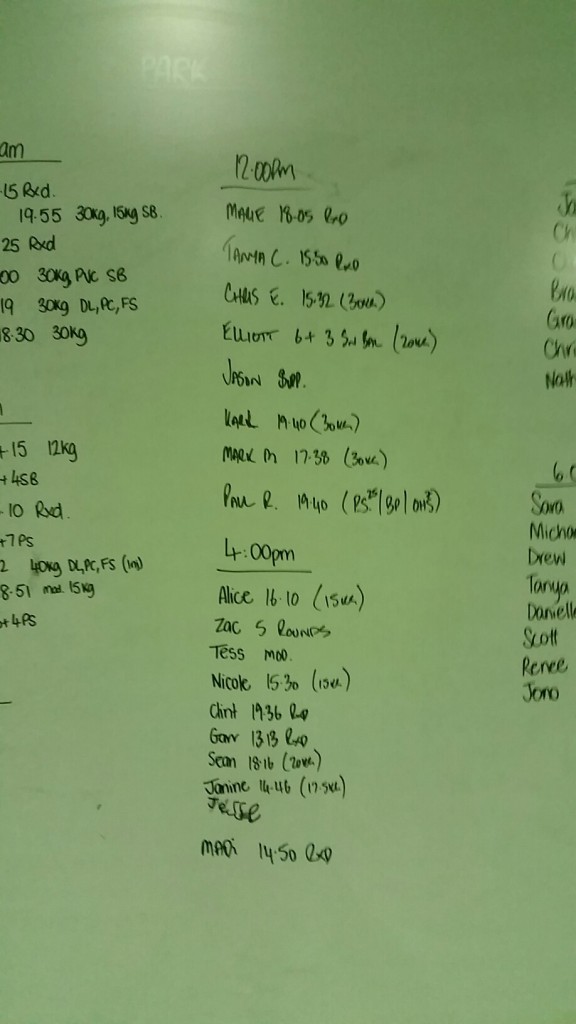 PARK
am
15 Rxd.
19.55 30kg, 15kg SB.
25 Rxd
00 30kg, PVC SB
19 30kg DL, PC, FS
8.30 30kg
+15 12kg
+4SB
10 Rxd.
+7PS
2 40kg DL, PC, FS (1m)
8.51 mod. 15kg
+4PS
12:00pm
18.05 RxD
TANYA C. 15.50 RxD
CHRIS E. 15.32 (30KG)
ELLIOTT 6+3 (20KG)
JASON
KARL 19.40 (30KG)
MARK M 17.38 (30KG)
PAUL R. 19.40
4:00pm
Alice 16.10 (15KG)
Zac 5 ROUNDS
Tess MOD.
Nicole 15.30 (15KG)
Clint 19.36 RxD
13.13 RxD
Sean 18.16 (20KG)
Janine 14.46 (17.5KG)
Jesse
MADi 14.50 RxD
Ja
Ch
Bra
Gra
Chri
Nath
6:0
Sara
Micha
Drew
Tanya
Danielle
Scott
Renee
Jono